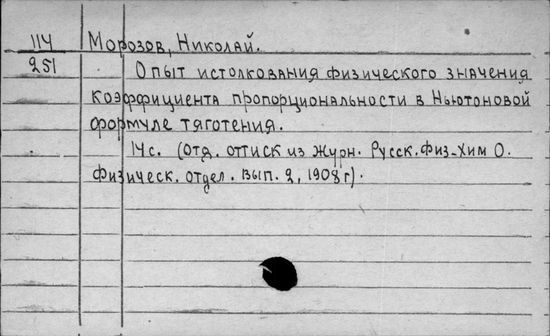 114 Морозов, Николай.
251 Опыт истолкования физического значения
коэффициента пропорциональности в Ньютоновой
формуле тяготения.
14с. (Отд. оттиск из Журн. Русск. Физ-Хим О.
Физическ. отдел. Вып. 2, 1908 г).